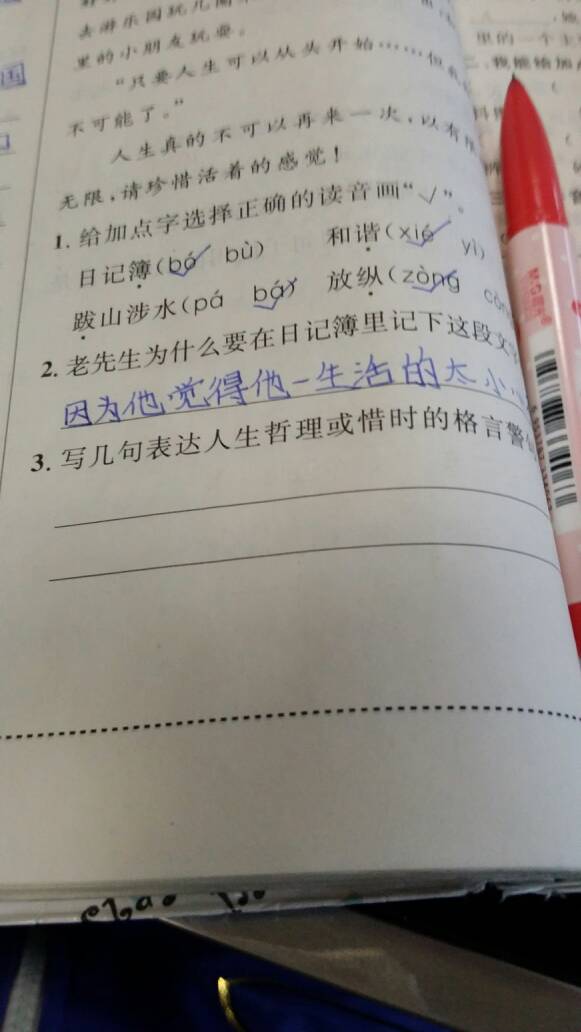 去游乐园玩几圈
里的小朋友玩耍。
“只要人生可以从头开始……但
不可能了。”
人生真的不可以再来一次,以有
无限,请珍惜活着的感觉!
1. 给加点字选择正确的读音画“√”。
日记簿(bó bù) 和谐(xié yì)
跋山涉水(pá bá) 放纵(zòng
2. 老先生为什么要在日记簿里记下这段文
因为他觉得他一生活的太小
3. 写几句表达人生哲理或惜时的格言警
国
里的一个主
M&G